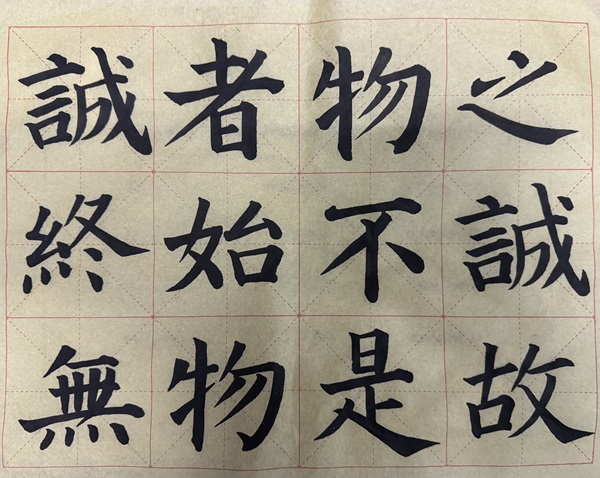 誠者物之
終始不誠
無物是故